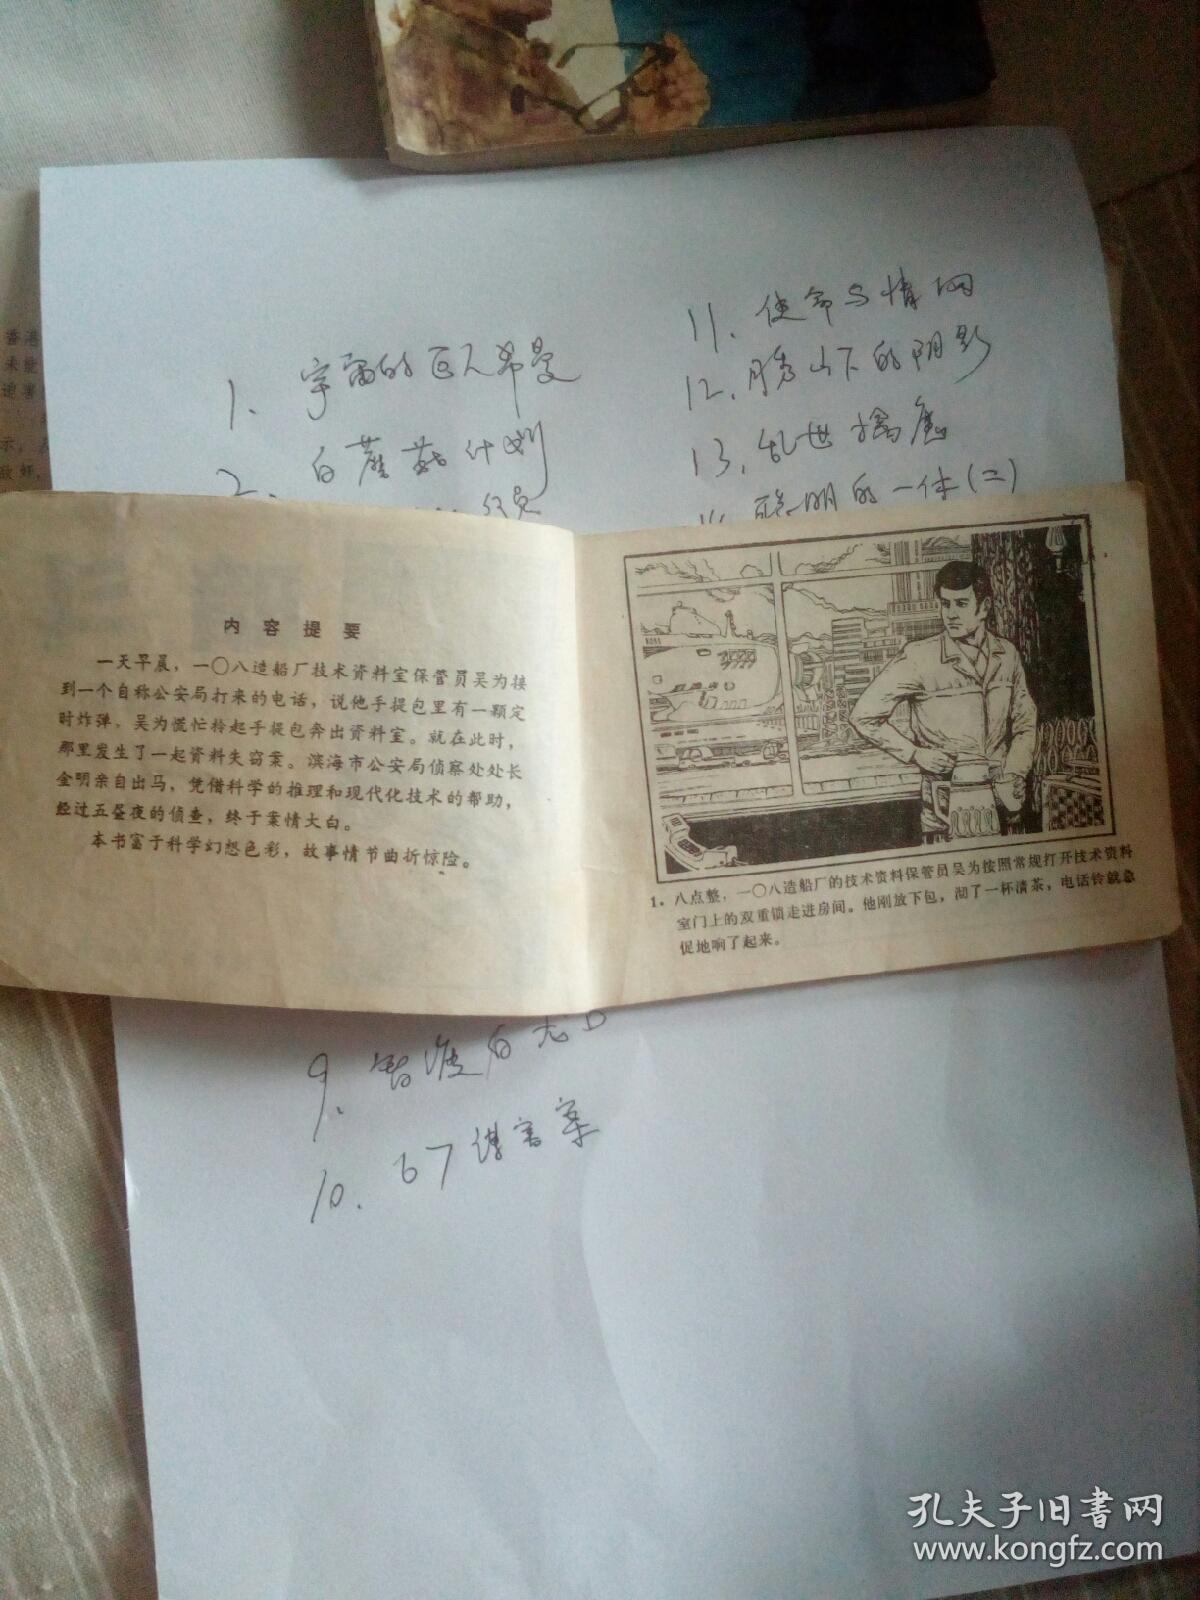 香港
未能
示,
敌奸,
1. 宇宙的巨人希曼
2. 白蘑菇计划
9. 智渡白龙口
10. 67谋害案
11. 使命与情网
12. 山下的阴影
13. 乱世擒鹰
聪明的一休(二)
内容提要
一天早晨，一〇八造船厂技术资料室保管员吴为接
到一个自称公安局打来的电话，说他手提包里有一颗定
时炸弹。吴为慌忙拎起手提包奔出资料室。就在此时，
那里发生了一起资料失窃案。滨海市公安局侦察处处长
金明亲自出马，凭借科学的推理和现代化技术的帮助，
经过五昼夜的侦查，终于案情大白。
本书富于科学幻想色彩，故事情节曲折惊险。
1. 八点整，一〇八造船厂的技术资料保管员吴为按照常规打开技术资料
室门上的双重锁走进房间。他刚放下包，沏了一杯清茶，电话铃就急
促地响了起来。
孔夫子旧书网
www.kongfz.com